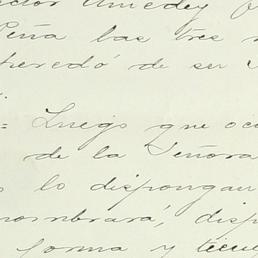 ctor Amedey
Peña las tres
heredó de su
= Luego que oc
de la Señora
s lo dispongan
nombrará, disp
forma y